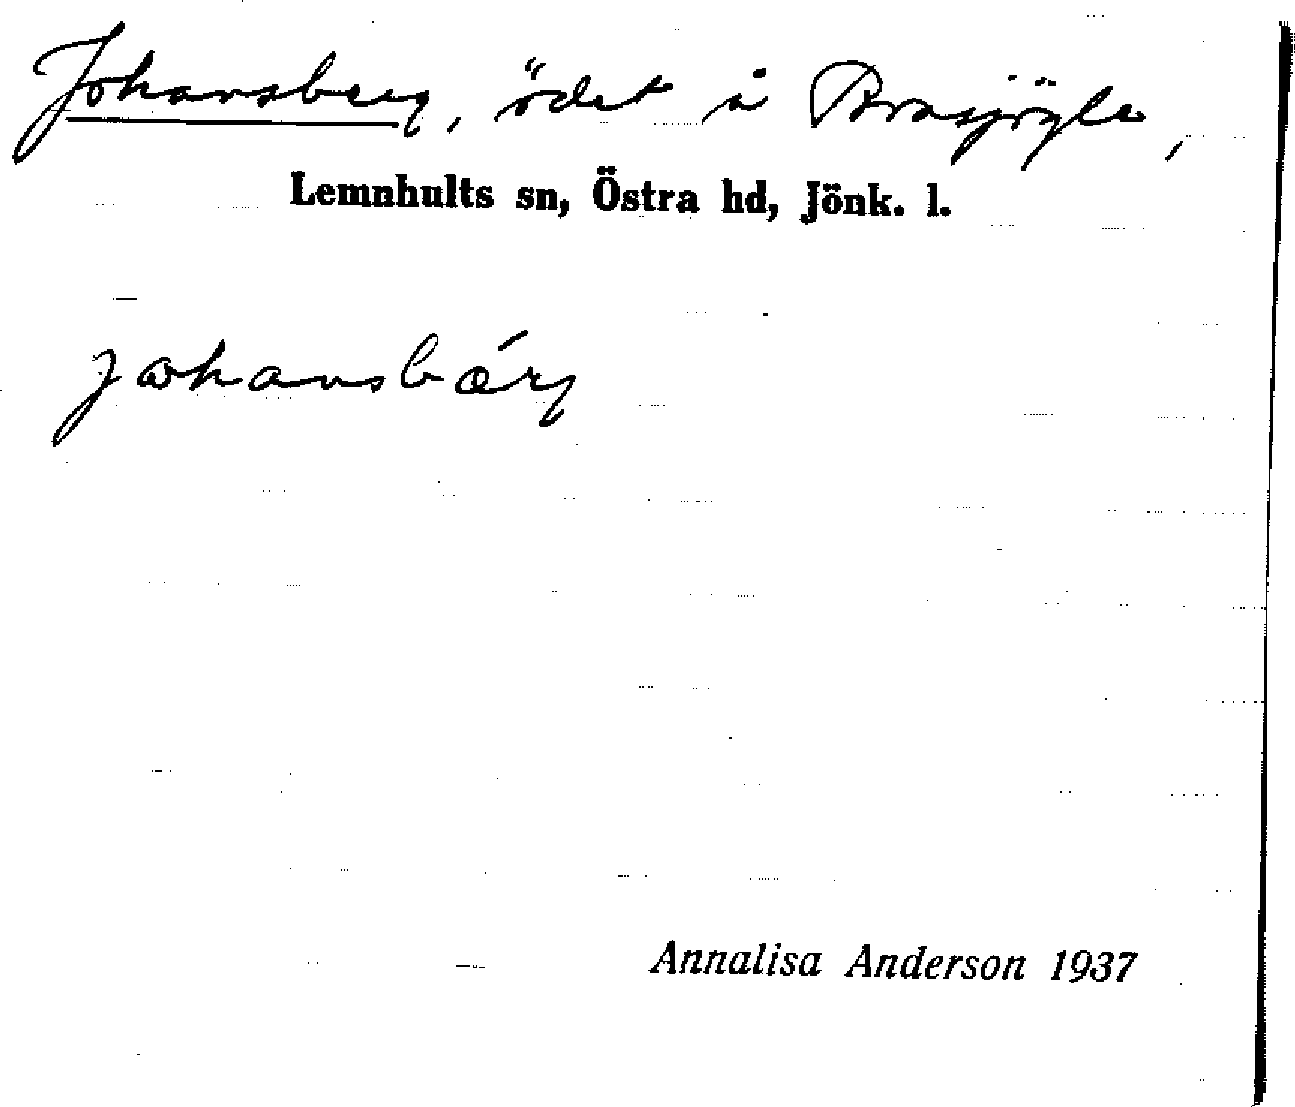 Johansberg, ödet å Brasjöyle,
Lemnhults sn, Östra hd, Jönk. l.
johansbárj
Annalisa Anderson 1937